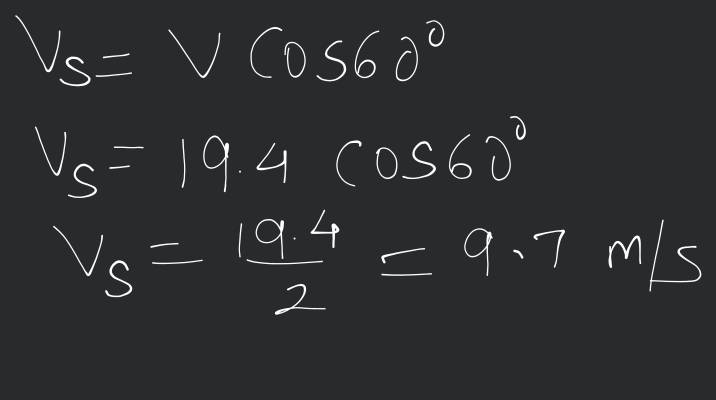 Vs = V Cos60°
Vs = 19.4 cos60°
Vs = 19.4/2 = 9.7 m/s